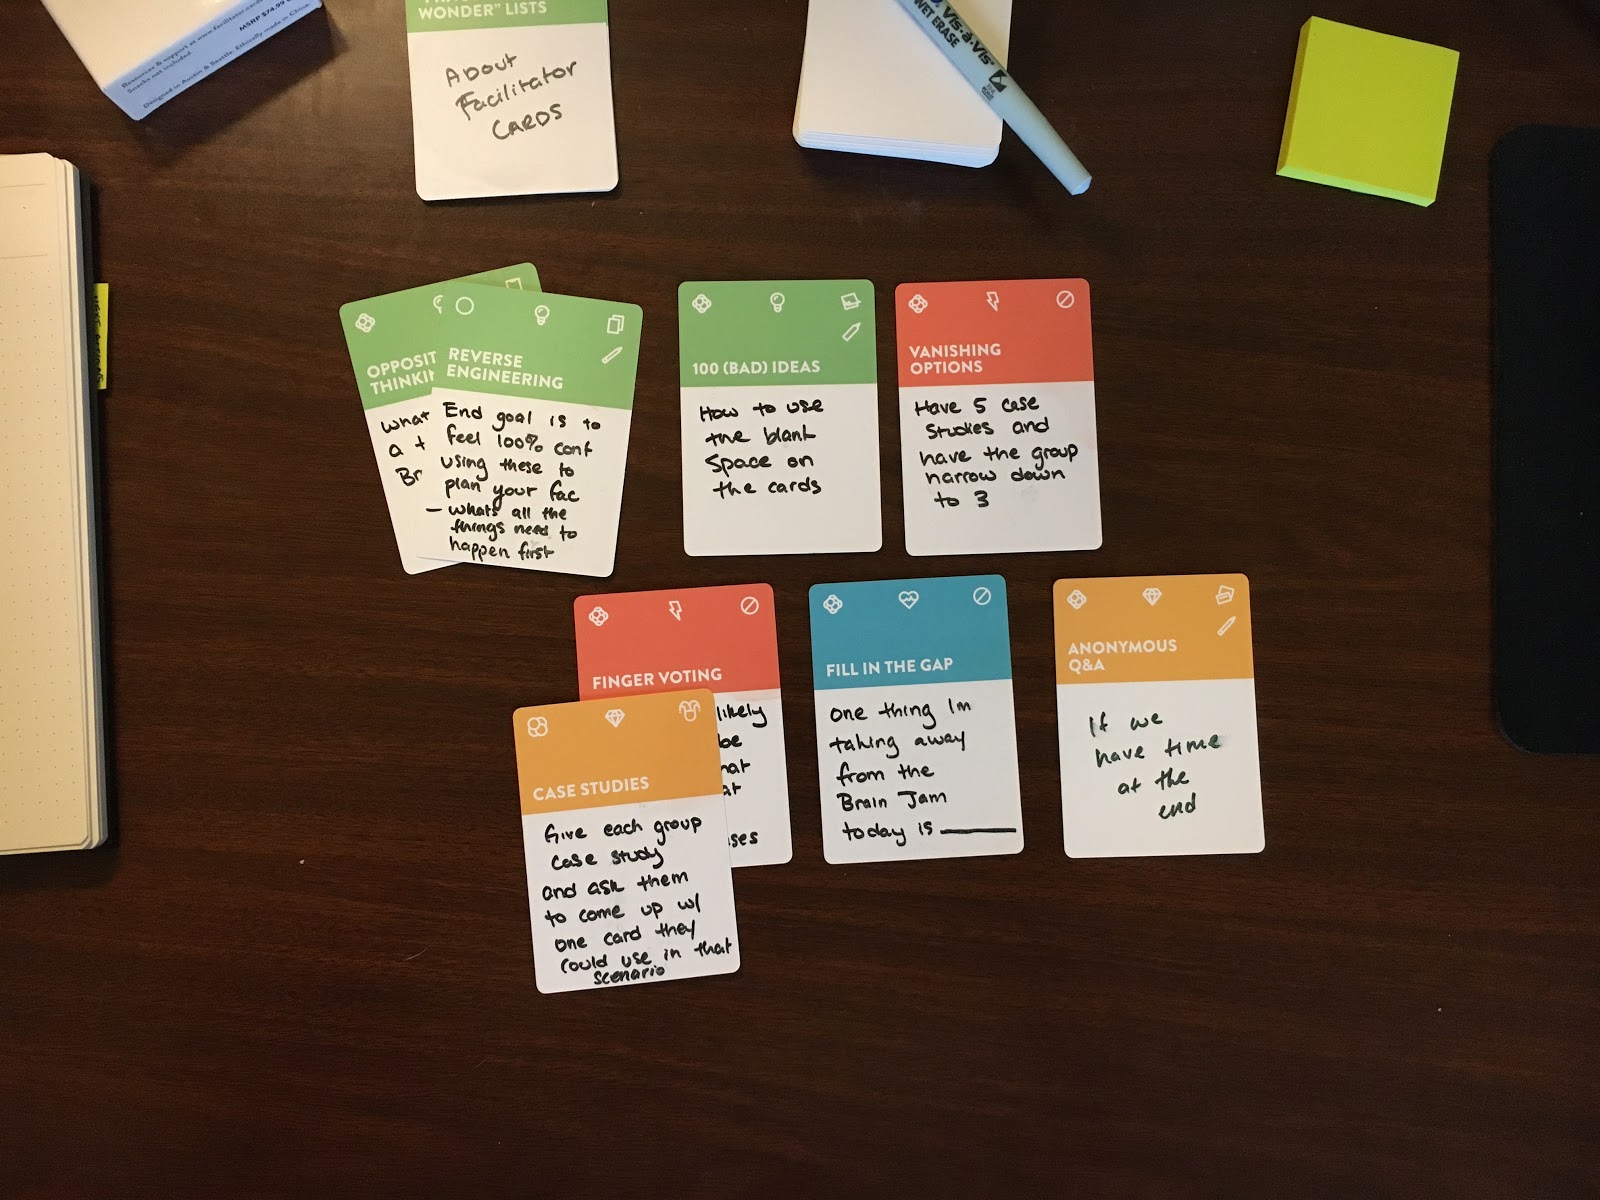 Resources & support at www.facilitator.cards
Snacks not included.
MSRP $74.99
Designed in Austin & Seattle. Ethically made in China.
WONDER" LISTS
About
Facilitator
CARDS
Vis-à-Vis
WET ERASE
OPPOSIT
THINKIN
what
a
Br
REVERSE
ENGINEERING
End goal is to
feel 100% conf
using these to
plan your fac
- whats all the
things need to
happen first
100 (BAD) IDEAS
How to use
the blank
Space on
the cards
VANISHING
OPTIONS
Have 5 case
Studies and
have the group
narrow down
to 3
FINGER VOTING
likely
be
hat
at
ses
CASE STUDIES
Give each group
case study
and ask them
to come up w/
one card they
could use in that
scenario
FILL IN THE GAP
one thing Im
taking away
from the
Brain Jam
today is ______
ANONYMOUS
Q&A
If we
have time
at the
end